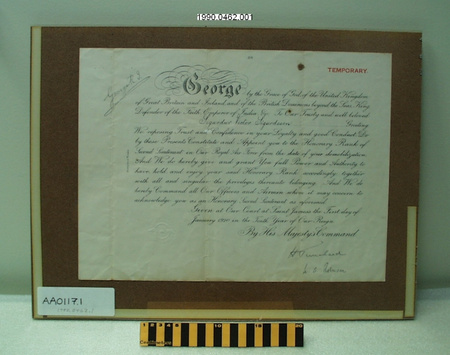 1990.0462.001
TEMPORARY.
George R.I.
George by the Grace of God, of the United Kingdom
of Great Britain and Ireland and of the British Dominions beyond the Seas, King
Defender of the Faith, Emperor of India, &c. To Our Trusty and well beloved
Greeting
We reposing Trust and Confidence in your Loyalty and good Conduct Do
by these Presents Constitute and Appoint you to the Honorary Rank of
Second Lieutenant in Our Royal Air Force from the date of your demobilization
And We do hereby give and grant You full Power and Authority to
have hold and enjoy your said Honorary Rank accordingly together
with all and singular the privileges thereunto belonging. And We do
hereby Command all Our Officers and Airmen whom it may concern to
acknowledge you as an Honorary Second Lieutenant as aforesaid.
Given at Our Court at Saint James's the First day of
January 1920 in the Tenth Year of Our Reign
By His Majesty's Command
AA0117.1
1 2 3 4 5 10 15 20
Centimetres